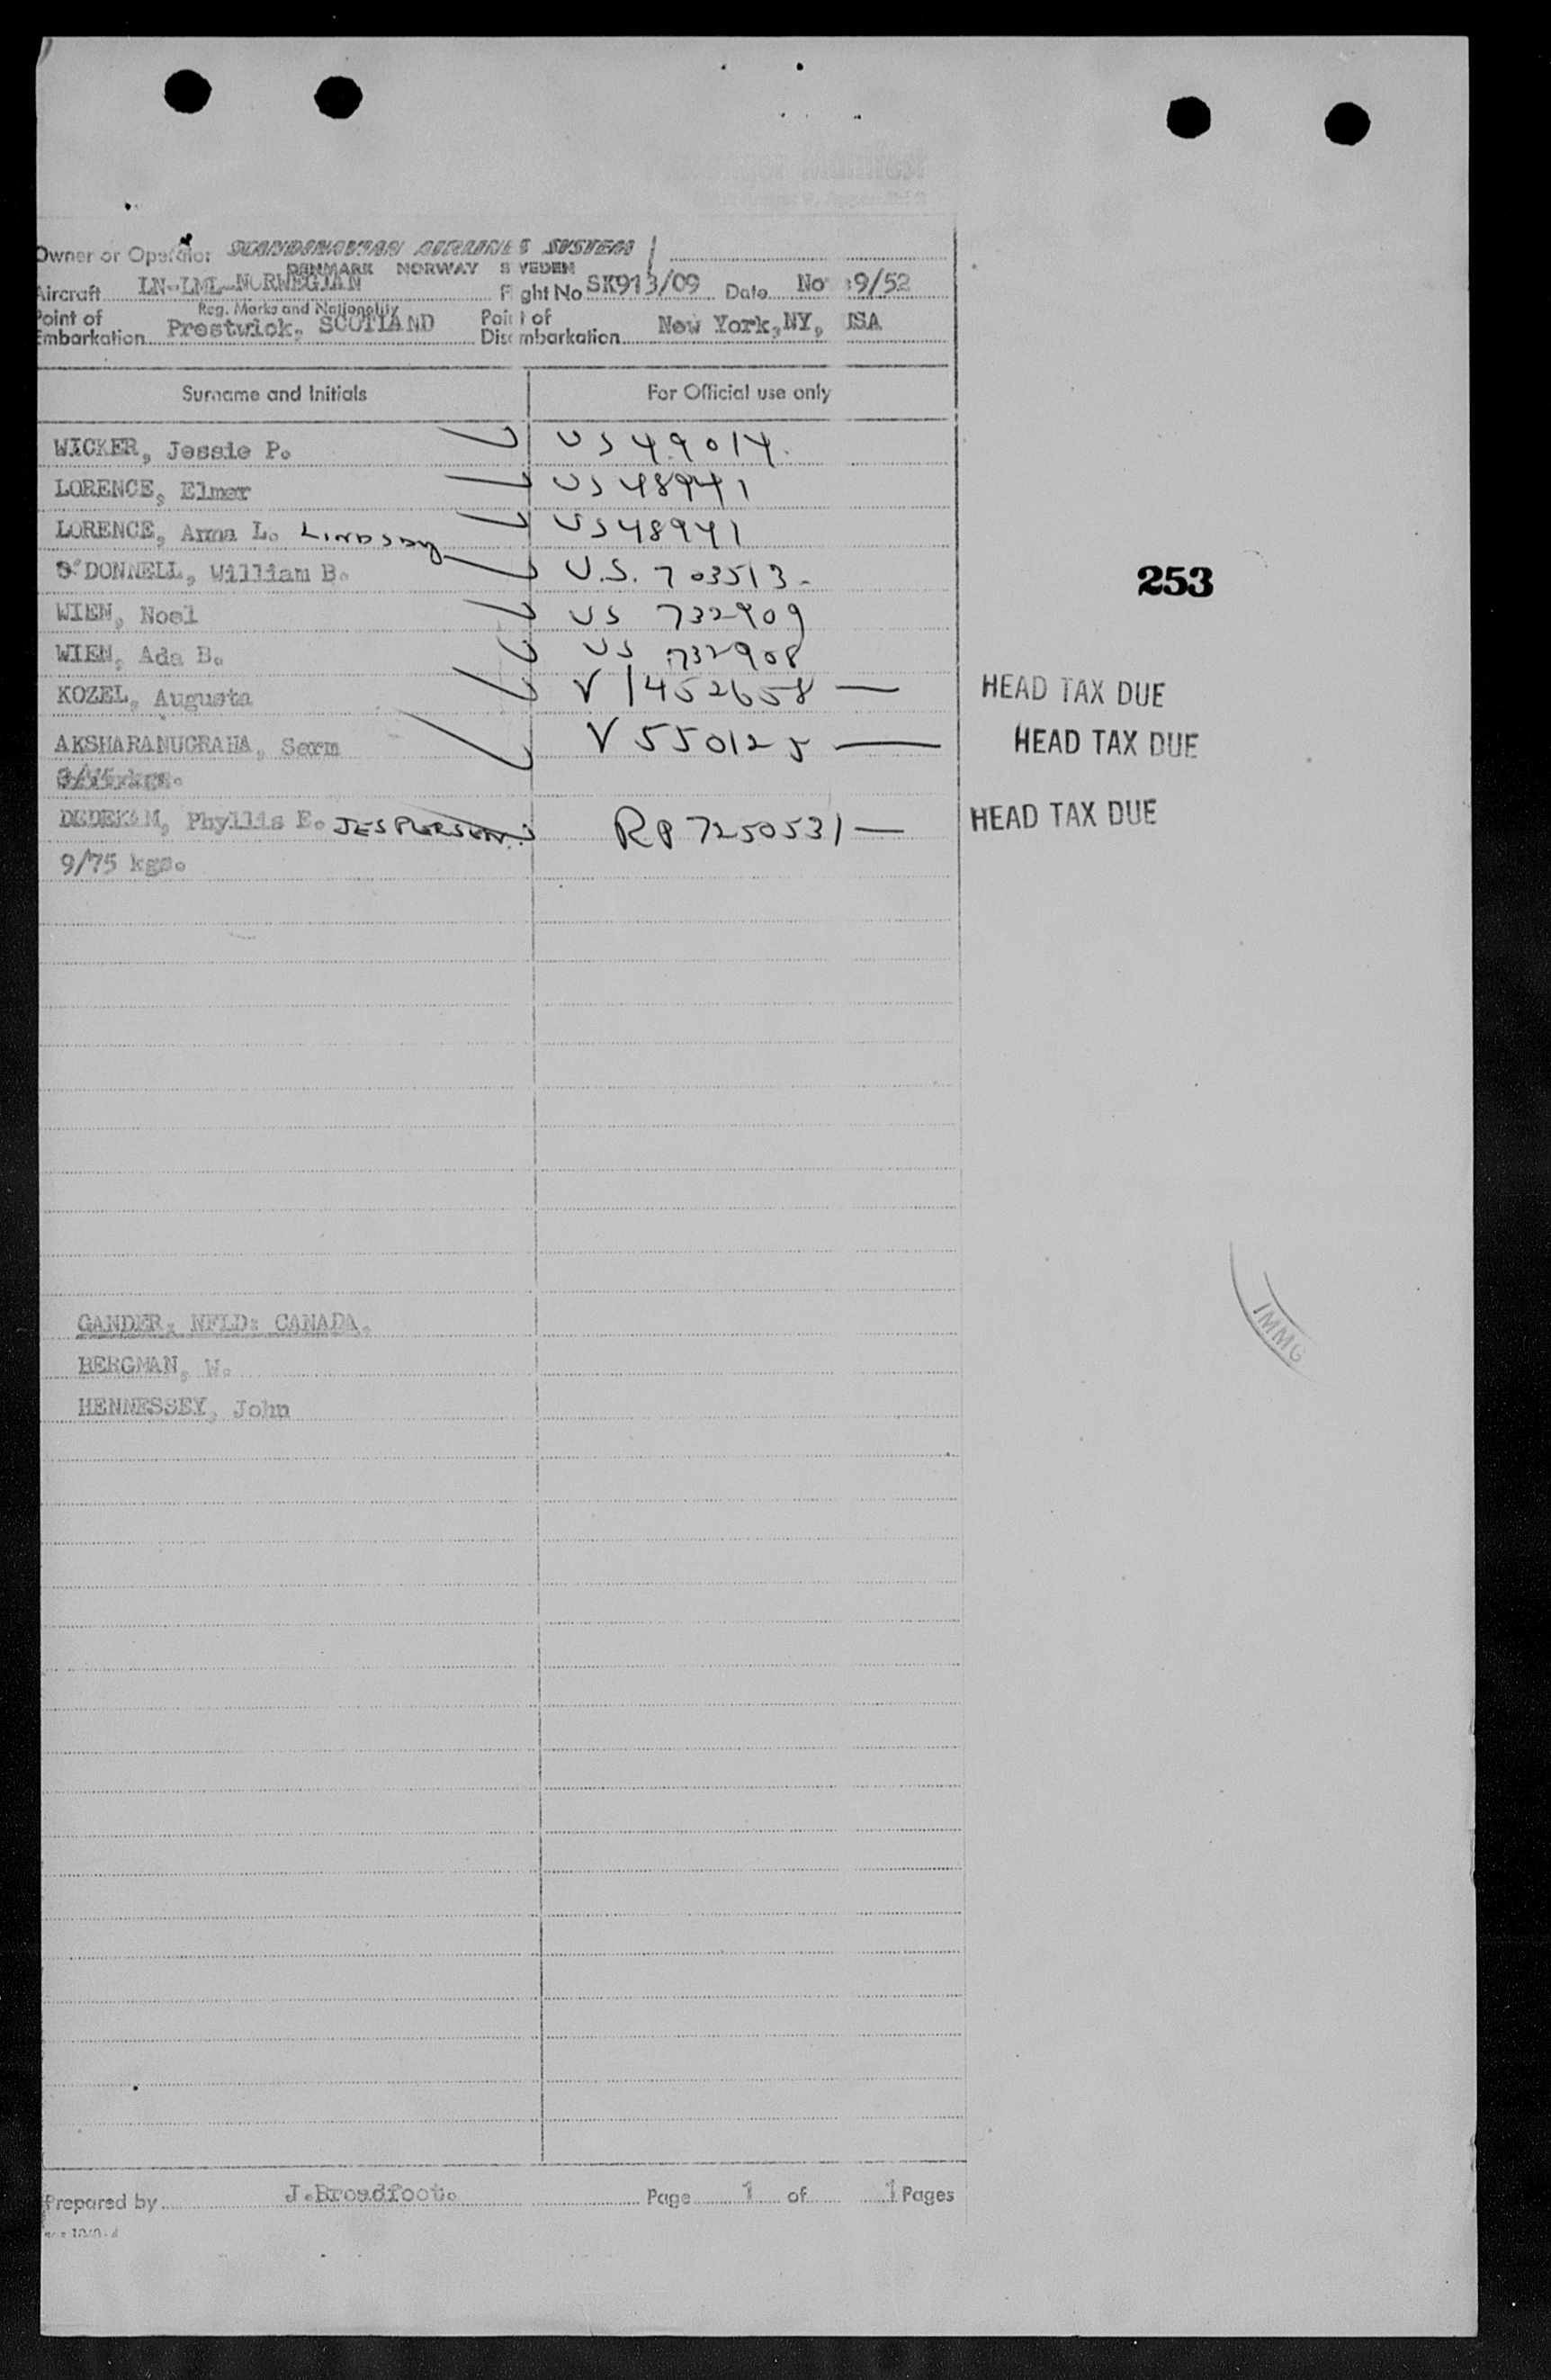 Owner or Operator SCANDINAVIAN AIRLINES SYSTEM
DENMARK NORWAY SWEDEN
Aircraft LN-LML-NORWEGIAN Flight No SK913/09 Date No 9/52
Reg. Marks and Nationality
Point of Embarkation Prestwick, SCOTLAND Point of Disembarkation New York, NY, USA
Surname and Initials For Official use only
WICKER, Jessie P. US 49014.
LORENCE, Elmer US 48941
LORENCE, Anna L. LINDSAY US 48941
O'DONNELL, William B. U.S. 703513-
253
WIEN, Noel US 732909
WIEN, Ada B. US 732908
KOZEL, Augusta V 1452658 — HEAD TAX DUE
AKSHARANUGRAHA, Serm V 550125 — HEAD TAX DUE
DEDEKAM, Phyllis E. JESPERSEN RP 7250531 — HEAD TAX DUE
9/75 kgs.
GANDER: NFLD: CANADA.
IMMG
BERGMAN, W.
HENNESSEY, John
Prepared by J.Broadfoot. Page 1 of 1 Pages